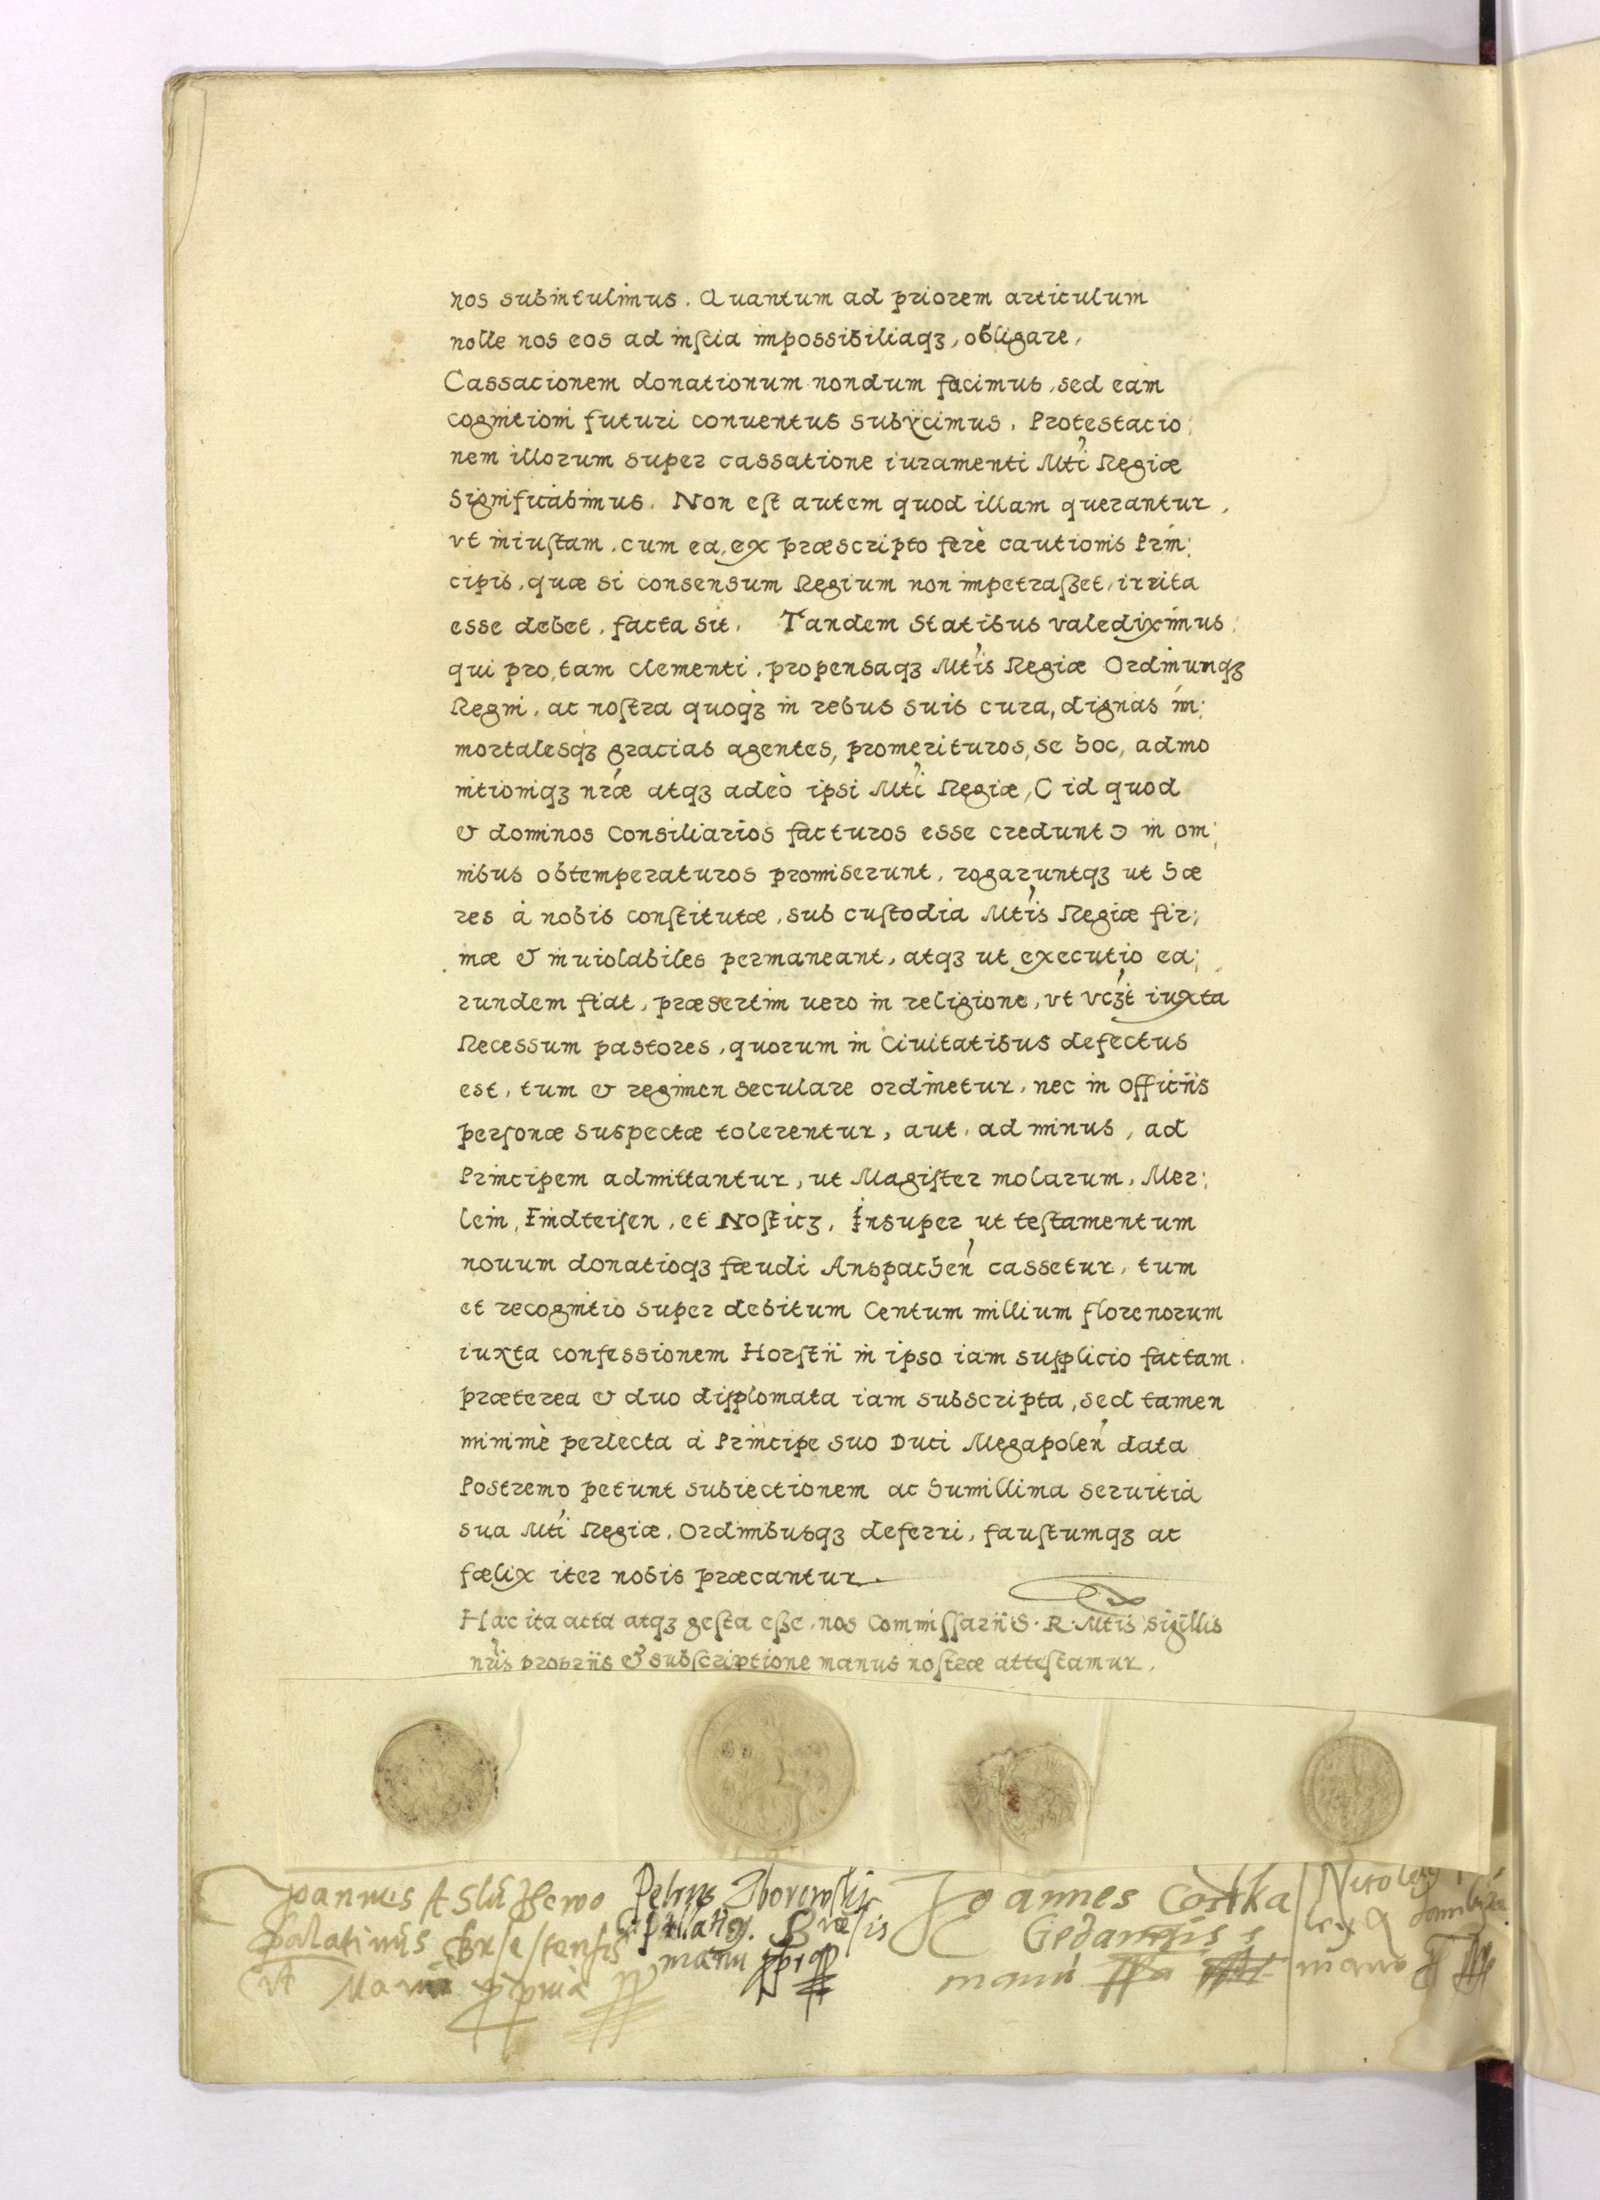 nos subintulimus. Quantum ad priorem articulum
nolle nos eos ad inscia impossibiliaqȝ, obligare,
Cassacionem donationum nondum facimus, sed eam
cognitioni futuri conuentus subÿcimus. Protestacio:
nem illorum super cassatione iuramenti Mti Regiæ
significabimus. Non est autem quod illam querantur,
vt iniustam, cum ea, ex præscripto ferè cautionis Prin:
cipis, quæ si consensum Regium non impetraßet, irrita
esse debet, facta sit. Tandem Statibus valediximus:
qui pro, tam clementi, propensaqȝ Mtis Regiæ Ordinumqȝ
Regni, ac nostra quoqȝ in rebus suis cura, dignas im:
mortalesqȝ gracias agentes, promerituros, se hoc, admo
nitioniqȝ nræ atqȝ adeò ipsi Mti Regiæ, (id quod
& dominos Consiliarios facturos esse credunt) in om:
nibus obtemperaturos promiserunt, rogaruntqȝ ut hæ
res à nobis constitutæ, sub custodia Mtis Regiæ fir:
mæ & inuiolabiles permaneant, atqȝ ut executio ea:
rundem fiat, præsertim uero in religione, vt vcȝt iuxta
Recessum pastores, quorum in Ciuitatibus defectus
est, tum & regimen seculare ordinetur, nec in officiis
personæ suspectæ tolerentur, aut, ad minus, ad
Principem admittantur, ut Magister molarum, Mer:
lein, Findteisen, et Nosticȝ. Insuper ut testamentum
nouum donatioqȝ fæudi Anspachen cassetur, tum
et recognitio super debitum Centum millium florenorum
iuxta confessionem Horstii in ipso iam supplicio factam.
præterea & duo diplomata iam subscripta, sed tamen
minimè perlecta à Principe suo Duci Megapolen data
Postremo petunt subiectionem ac humillima seruitia
sua Mti Regiæ, Ordinibusqȝ deferri, faustumqȝ ac
fælix iter nobis præcantur.
Hac ita acta atqȝ gesta eße, nos Commissarii S. R. Mtis sigillis
nris propriis & subscriptione manus nostræ attestamur.
Joannes A Sluzewo Petrus Zborowski Joannes Costka
Palatinus Brsestensis manu Gedanensis
manu
mano